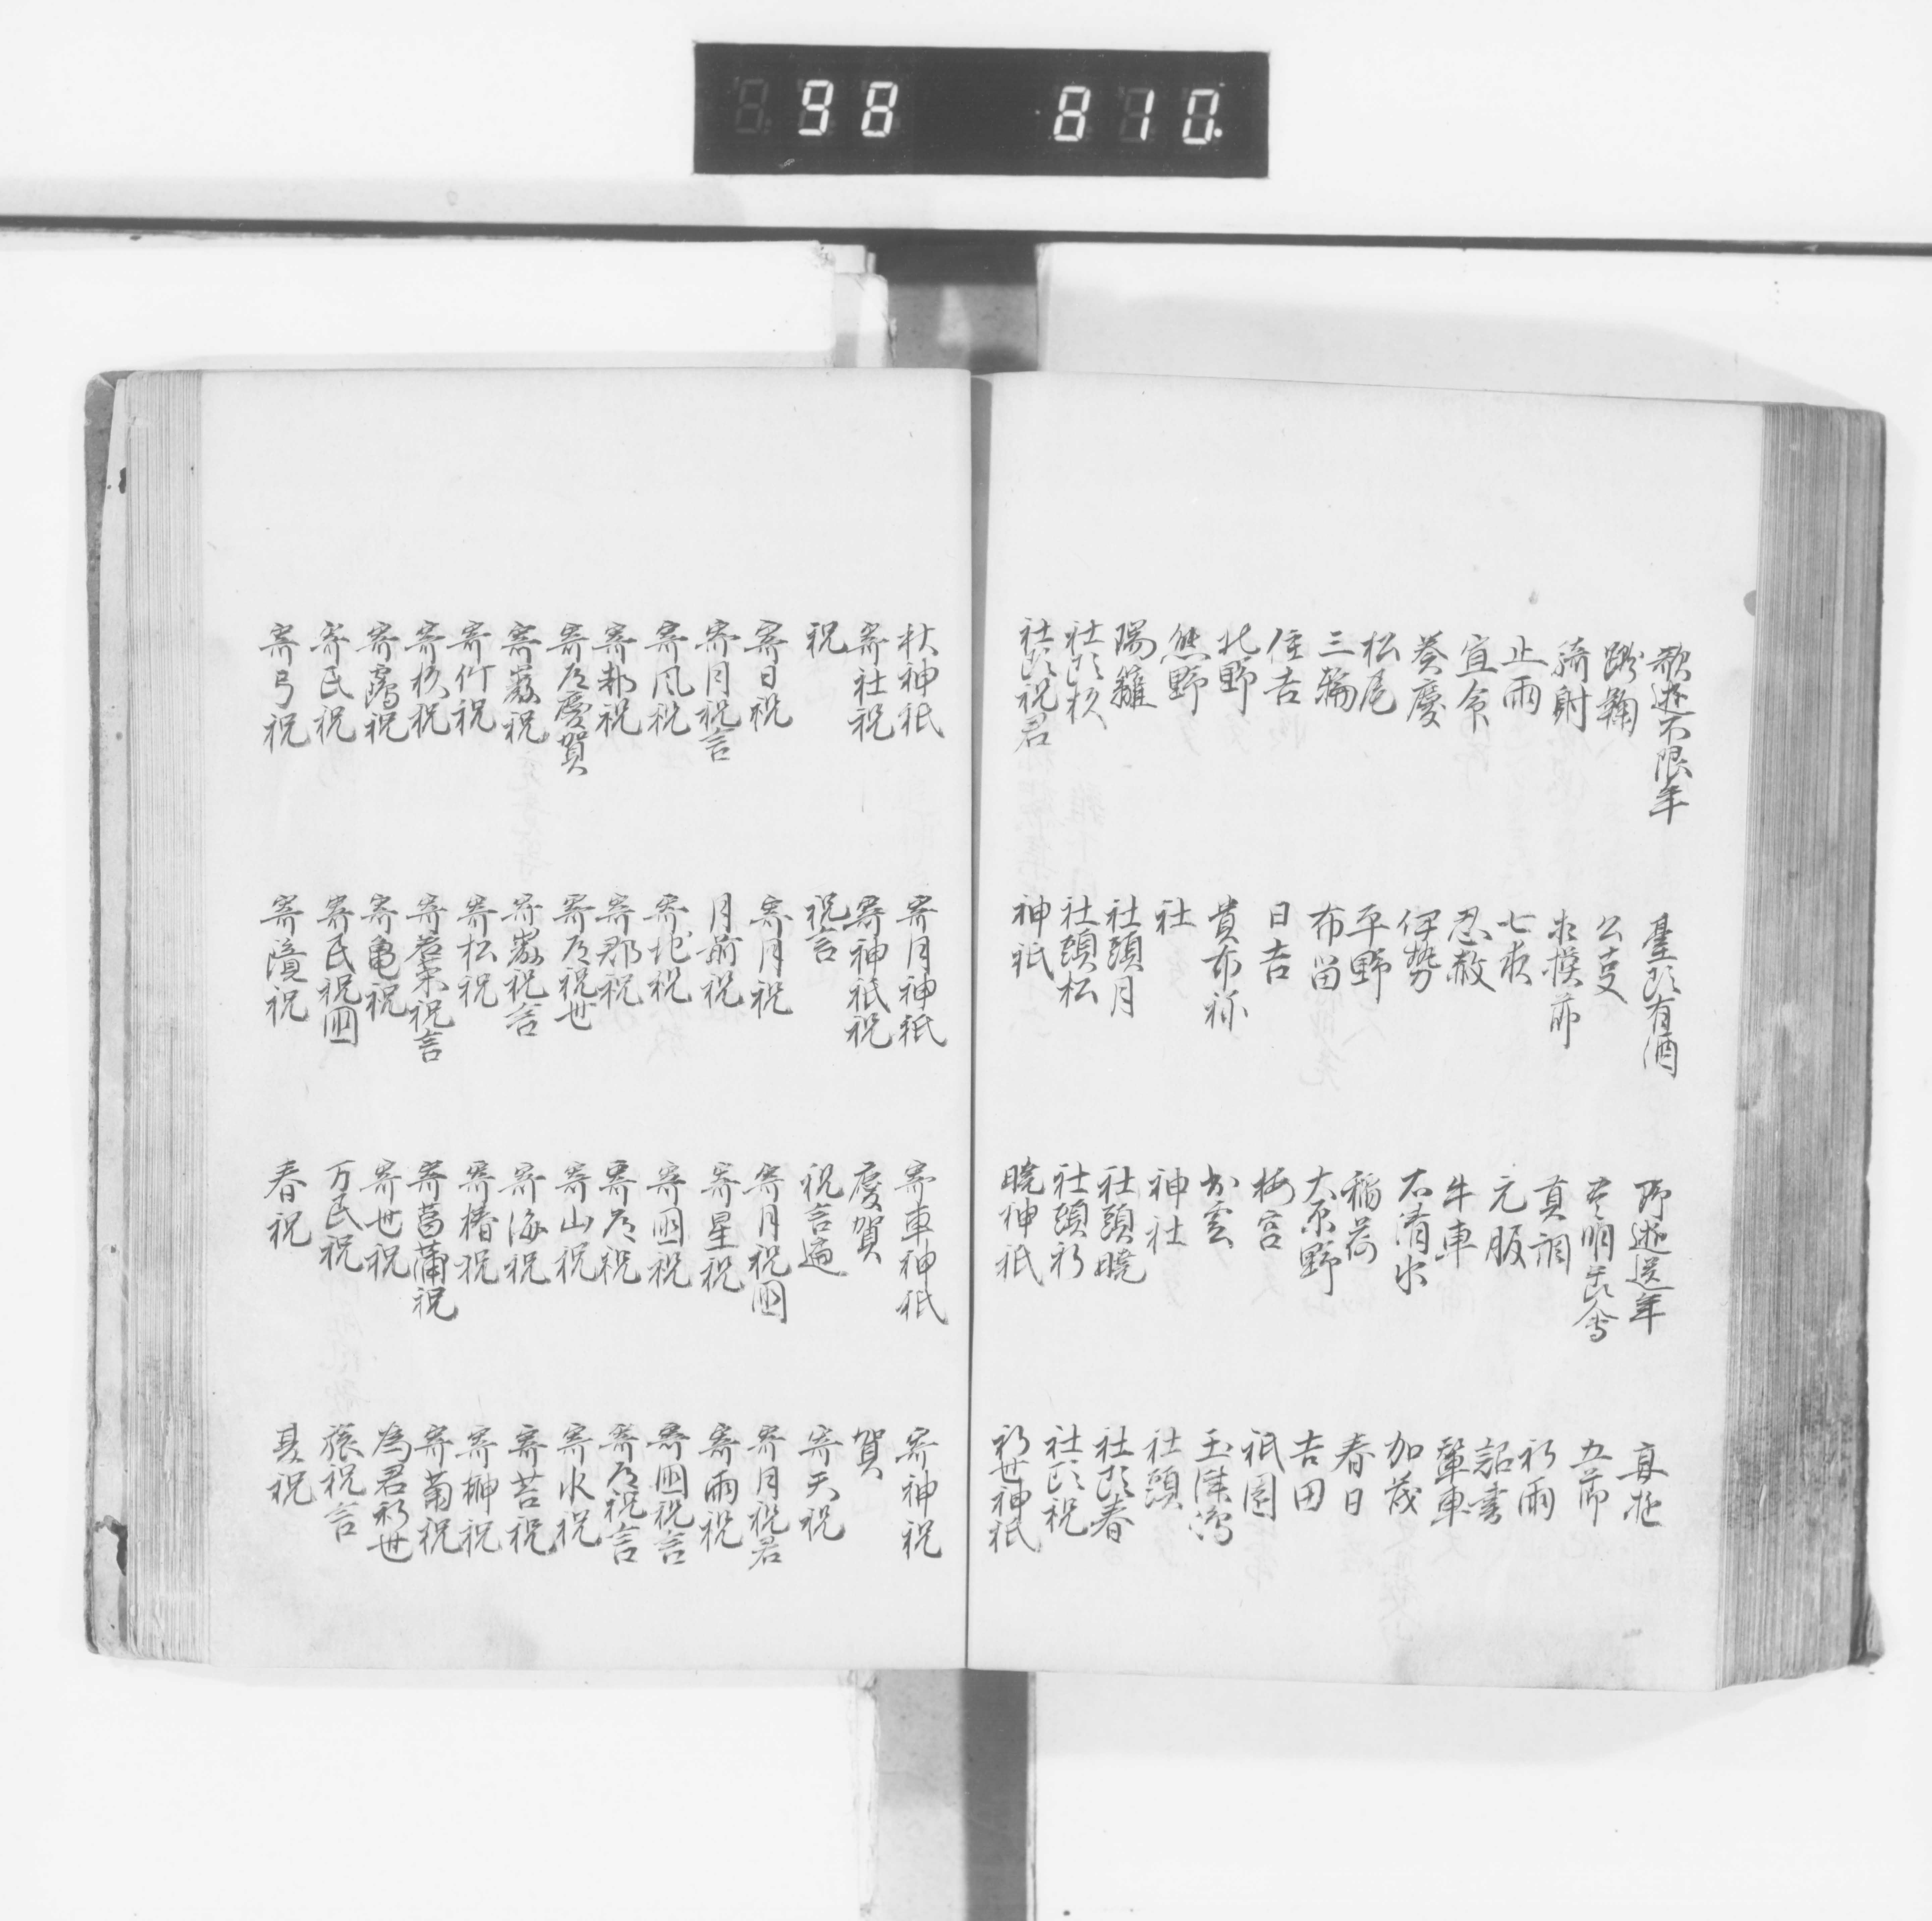 98 810
歌遊不限年 臺頭有酒 即遊送年 真遊
蹴鞠 公事 豊明節会 五節
騎射 相撲節 貢調 祈雨
止雨 七夜 元服 詔書
宣命 恩赦 牛車 輦車
葵慶 伊勢 石清水 加茂
松尾 平野 稲荷 春日
三輪 布留 大原野 吉田
住吉 日吉 梅宮 祇園
北野 貴布祢 出雲 玉津嶋
熊野 社 神社 社頭
陽籬 社頭月 社頭暁 社頭春
社頭杉 社頭松 社頭祈 社頭祝
社頭祝君 神祇 暁神祇 祈世神祇
秋神祇 寄月神祇 寄車神祇 寄神祝
寄社祝 寄神祇祝 慶賀 賀
祝 祝言 祝言遍 寄天祝
寄日祝 寄月祝 寄月祝國 寄月祝君
寄月祝言 月前祝 寄星祝 寄雨祝
寄風祝 寄地祝 寄國祝 寄國祝言
寄都祝 寄郡祝 寄道祝 寄道祝言
寄道慶賀 寄道祝世 寄山祝 寄水祝
寄巌祝 寄巌祝言 寄海祝 寄苔祝
寄竹祝 寄松祝 寄椿祝 寄榊祝
寄杉祝 寄若菜祝言 寄菖蒲祝 寄菊祝
寄鶴祝 寄亀祝 寄世祝 為君祈世
寄民祝 寄民祝國 万民祝 旅祝言
寄弓祝 寄鏡祝 春祝 夏祝